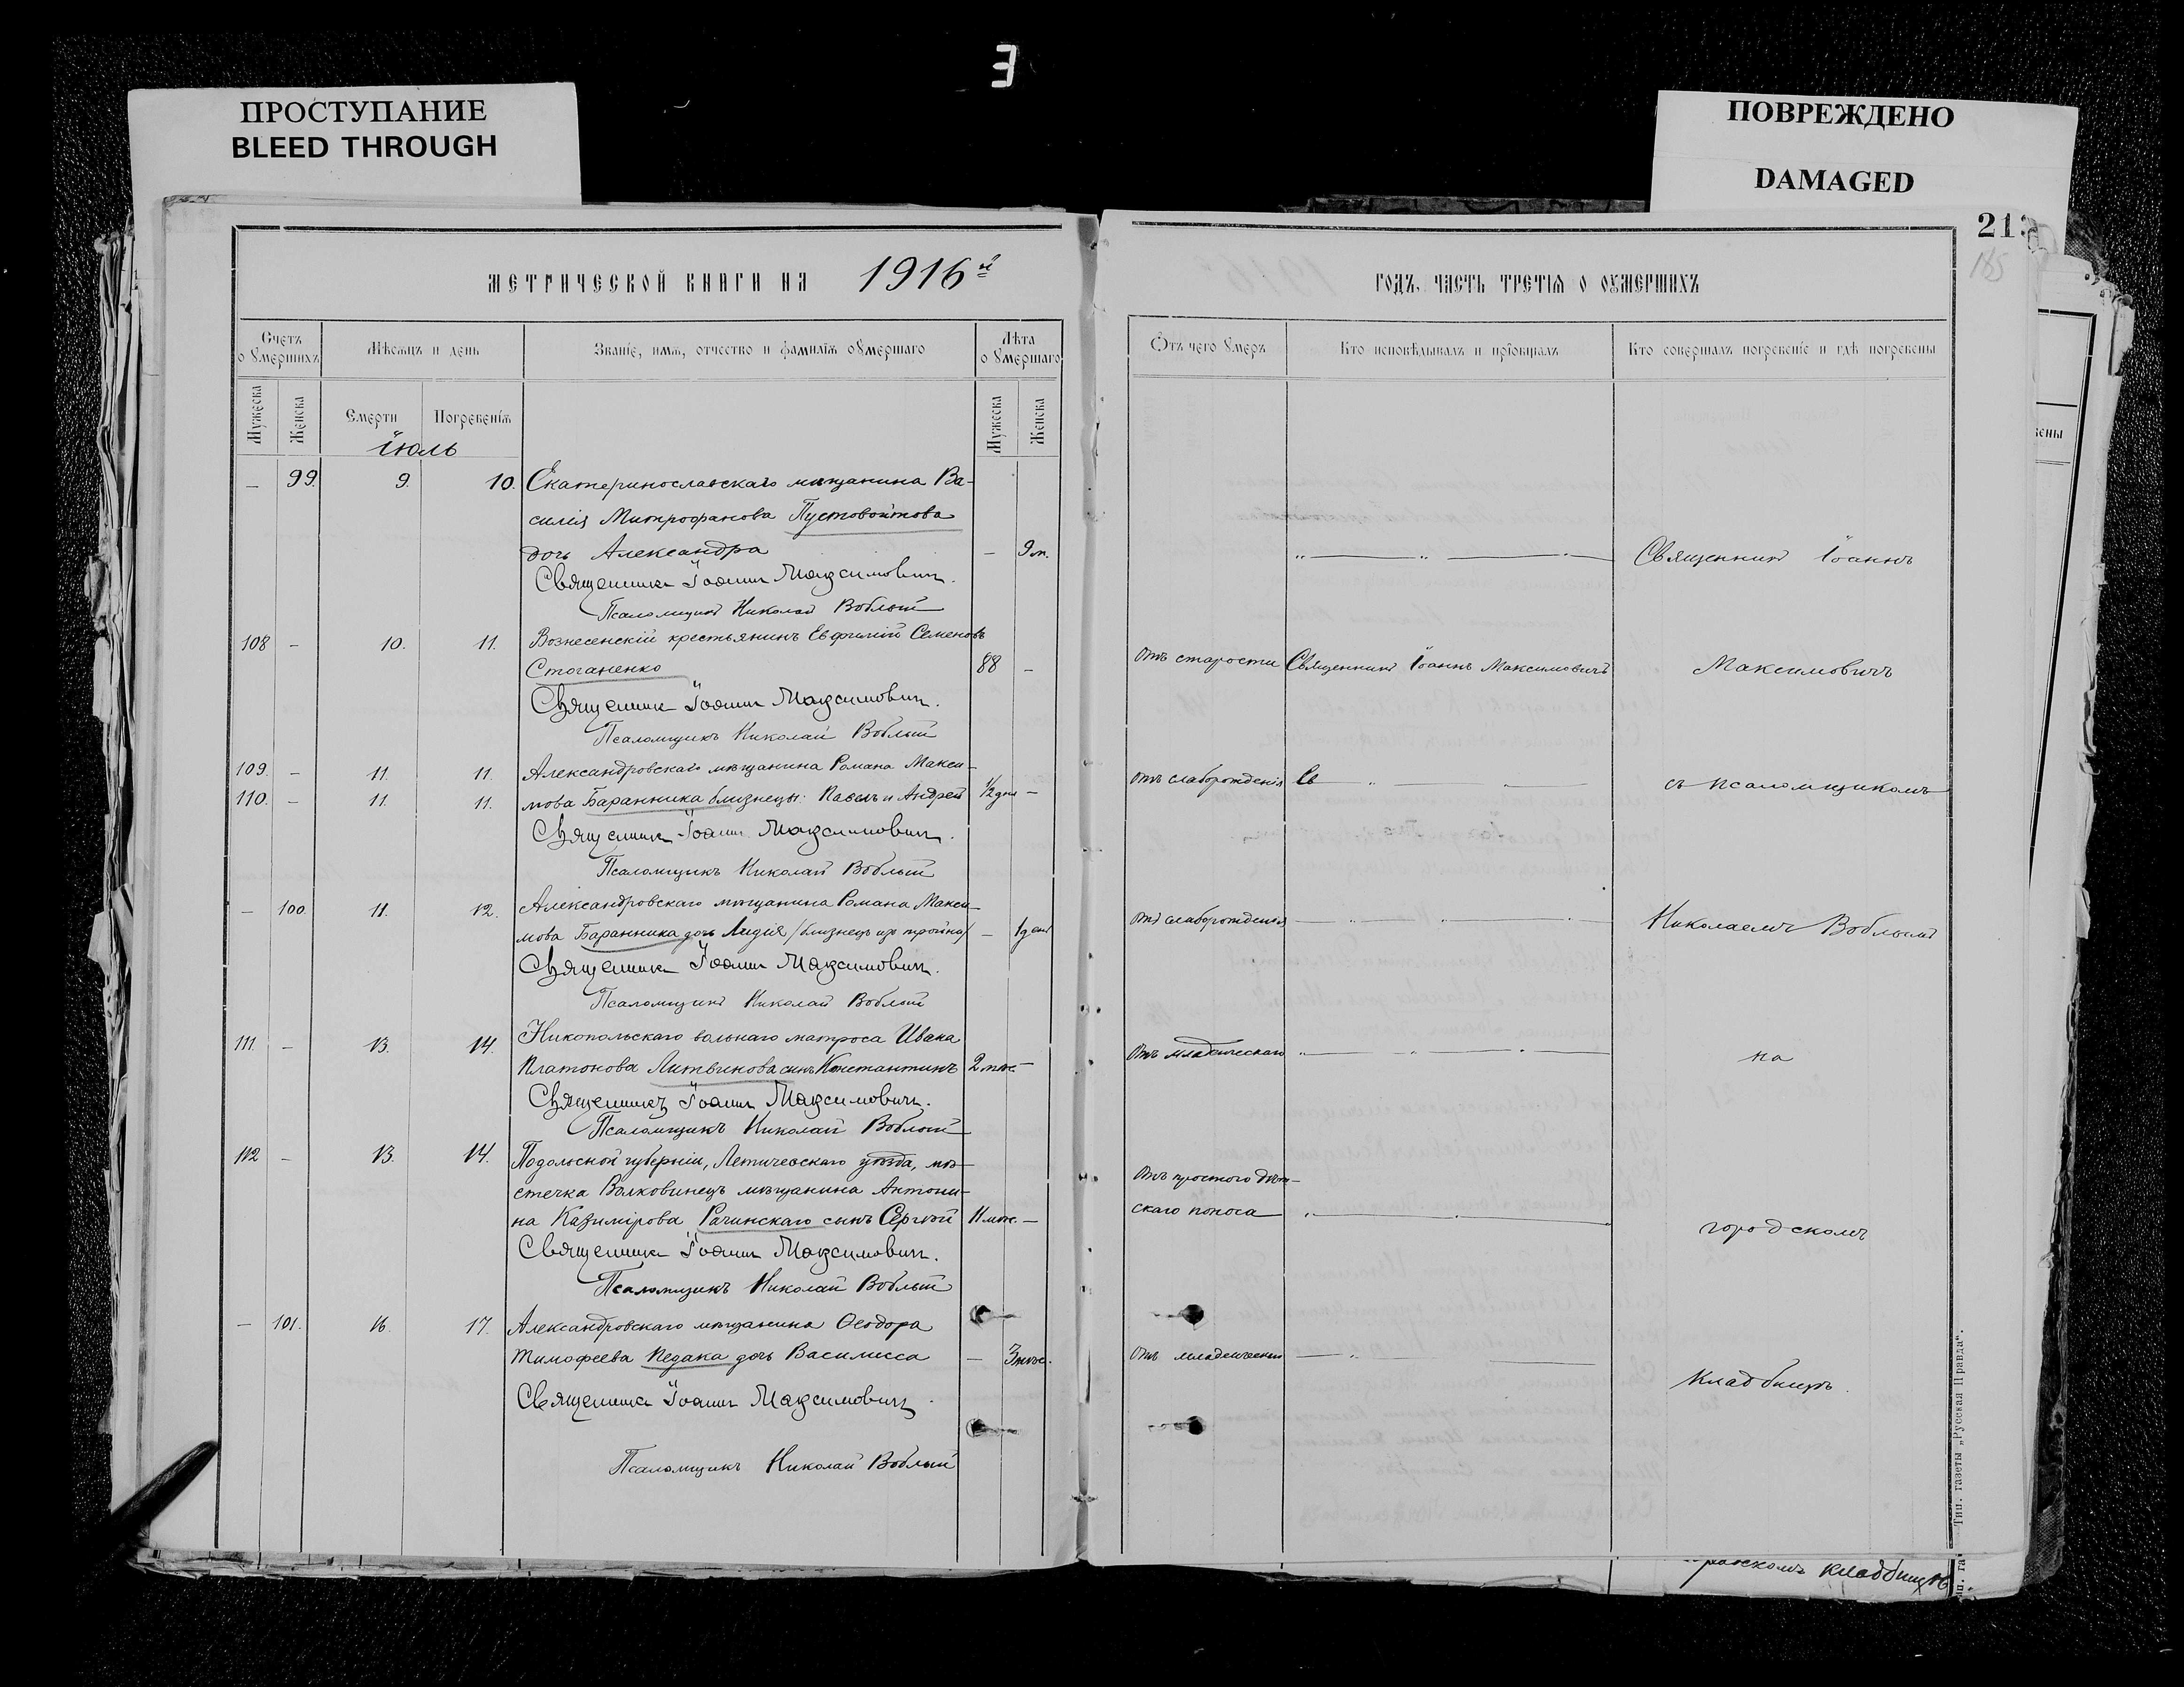 ПРОСТУПАНИЕ
BLEED THROUGH
ПОВРЕЖДЕНО
DAMAGED
213
185
МЕТРИЧЕСКОЙ КНИГИ НА 1916й
ГОДЪ, ЧАСТЬ ТРЕТІЯ О ОУМЕРШИХЪ
Счетъ о Умершихъ
Мѣсяцъ и день
Званіе, имя, отчество и фамилія оумершаго
Лѣта о Умершаго
Мужеска
Женска
Смерти
Погребенія
Мужеска
Женска
Отъ чего Умеръ
Кто исповѣдывалъ и пріобщалъ
Кто совершалъ погребеніе и гдѣ погребены
Іюль
— 99. 9. 10. Екатеринославскаго мѣщанина Ва-
силія Митрофанова Пустовойтова
дочь Александра — 9 м. „ — „ — „ — Священникъ Іоаннъ
Священникъ Іоаннъ Максимовичъ.
Псаломщикъ Николай Воблый
108 — 10. 11. Вознесенскій крестьянинъ Евфимій Семеновъ
Стоганенко 88 — отъ старости Священникъ Іоаннъ Максимовичъ Максимовичъ
Священникъ Іоаннъ Максимовичъ.
Псаломщикъ Николай Воблый
109. — 11. 11. Александровскаго мѣщанина Романа Макси-
110. — 11. 11. мова Баранника близнецы: Павелъ и Андрей 1/2 дня — отъ слаборожденія съ псаломщикомъ
Священникъ Іоаннъ Максимовичъ.
Псаломщикъ Николай Воблый
— 100. 11. 12. Александровскаго мѣщанина Романа Макси-
мова Баранника дочь Лидія /близнецъ изъ тройни/ — 1 день отъ слаборожденія — „ — „ — „ — Николаемъ Воблымъ
Священникъ Іоаннъ Максимовичъ.
Псаломщикъ Николай Воблый
111. — 13. 14. Никопольскаго вольнаго матроса Ивана
Платонова Литвинова сынъ Константинъ 2 мѣс. — отъ младенческаго „ — „ — „ — на
Священникъ Іоаннъ Максимовичъ.
Псаломщикъ Николай Воблый
112 — 13. 14. Подольской губерніи, Летичевскаго уѣзда, мѣ-
стечка Волковинецъ мѣщанина Антони-
на Казимірова Рачинскаго сынъ Сергѣй 11 мѣс. — отъ простого дѣт-
скаго поноса „ — „ — городскомъ
Священникъ Іоаннъ Максимовичъ.
Псаломщикъ Николай Воблый
— 101. 16. 17. Александровскаго мѣщанина Ѳеодора
Тимофеева Педака дочь Василисса — 3 мѣс. отъ младенческой — „ — кладбищѣ.
Священникъ Іоаннъ Максимовичъ.
Псаломщикъ Николай Воблый
Тип. газеты „Русская Правда".
кладбищѣ